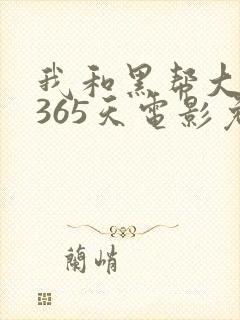 我和黑帮大
365天电影
蘭峭